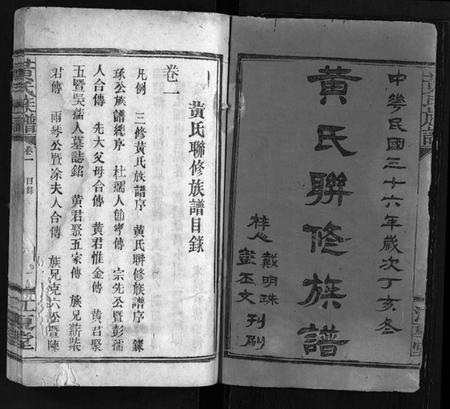 中華民國三十六年歲次丁亥冬
黃氏聯修族譜
梓人 戴明珠
刊刷
黃氏聯修族譜目錄
卷一
凡例 三修黃氏族譜序 黃氏聯修族譜序 錄
琢公族譜總序 杜孺人節孝傳 宗先公暨彭孺
人合傳 先大父母合傳 黃君惟金傳 黃君聚
五暨吳孺人墓誌銘 黃君聚五家傳 族兄薪柴
君傳 雨琴公暨涂夫人合傳 族兄克六公暨陳
黃氏族譜
卷一 目錄